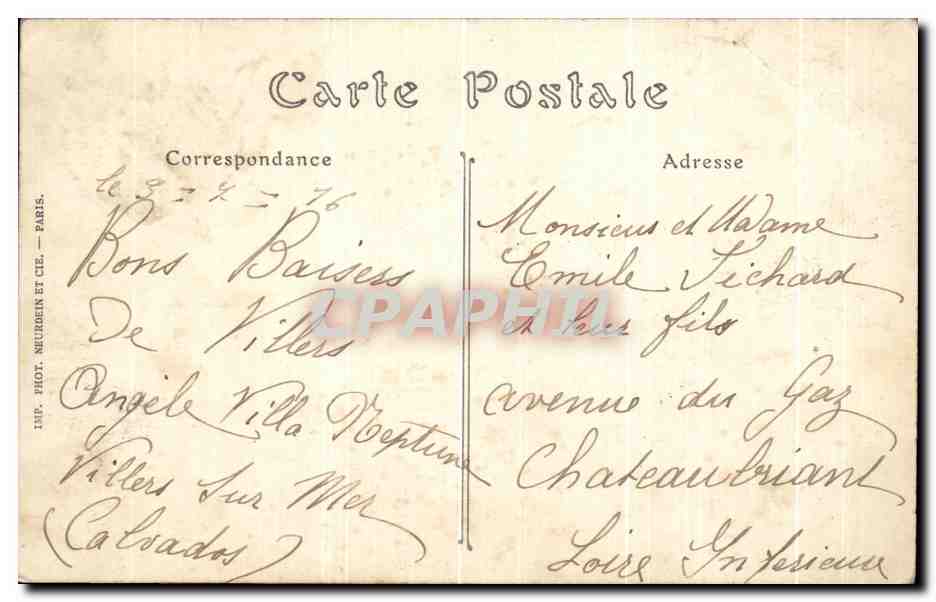 Carte Postale
Correspondance
le 9 - 7 - 16
Bons Baisers
De Villers
Angèle Villa Neptune
Villers Sur Mer
(Calvados)
Adresse
Monsieur et Madame
Emile Sichard
et leur fils
avenue du Gaz
Chateaubriant
Loire Inferieure
IMP. PHOT. NEURDEIN ET CIE. — PARIS.
CPAPHIL